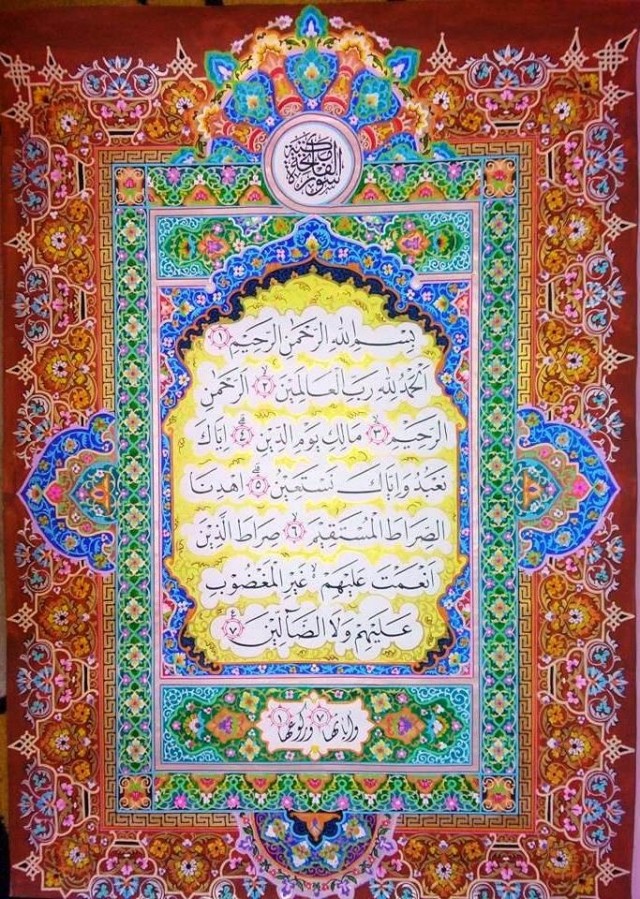 سورة الفاتحة مكية
بسم الله الرحمن الرحيم ١
الحمد لله رب العالمين ٢ الرحمن
الرحيم ٣ مالك يوم الدين ٤ اياك
نعبد واياك نستعين ٥ اهدنا
الصراط المستقيم ٦ صراط الذين
انعمت عليهم غير المغضوب
عليهم ولا الضآلين ٧
وآياتها ٧ وركوعها ١